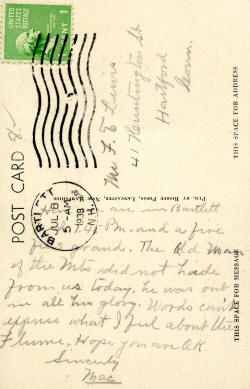 UNITED STATES POSTAGE
1¢ 1
POST CARD
BARTLETT
JUL 18
5 - AM
1938
N.H.
Mr F. E. Lewis
41 Huntington St
Hartford
Conn.
THIS SPACE FOR ADDRESS
THIS SPACE FOR MESSAGE
Pub. by Press, Lancaster, New Hampshire
are in Bartlett
P.M. and a fire
grand. The Old Man
of the Mts did not hide
from us today, he was out
in all his glory. Words can't
express what I feel about the
Flume. Hope you are OK
Sincerely
Mac